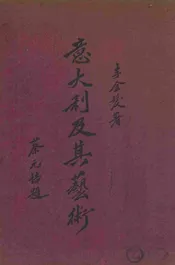 李金髮著
意大利及其藝術
蔡元培題